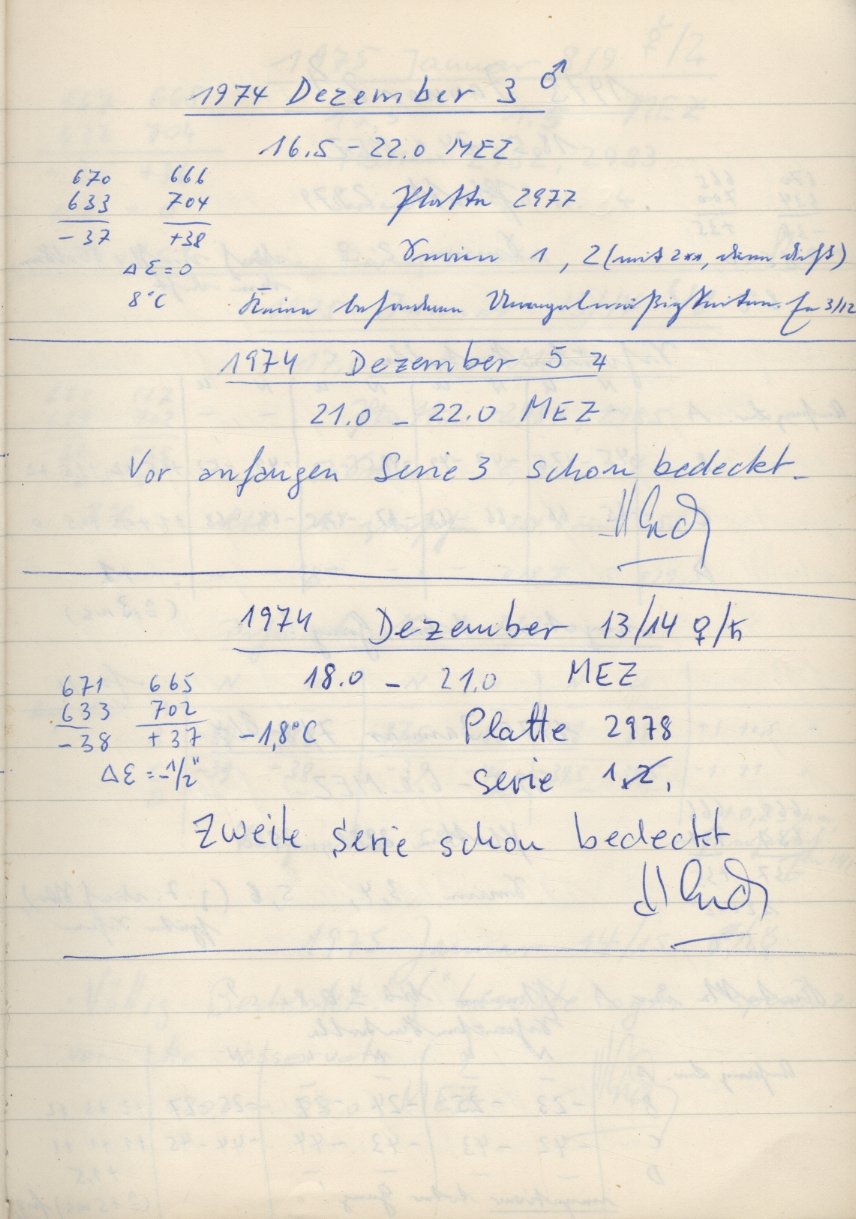 1974 Dezember 3 ♂
16.5 – 22.0 MEZ
670 666
633 704 Platte 2977
-37 +38
Serien 1, 2 (mit 2××, dann dicht)
Δ Ɛ = 0
8°C Keine besonderen Unregelmäßigkeiten. 3/12
1974 Dezember 5 ♃
21.0 – 22.0 MEZ
Vor anfangen Serie 3 schon bedeckt.
1974 Dezember 13/14 ♀/♄
18.0 – 21.0 MEZ
671 665
633 702 Platte 2978
-38 +37 -1,8°C
Δ Ɛ = -1/2" serie 1,2.
Zweite serie schon bedeckt